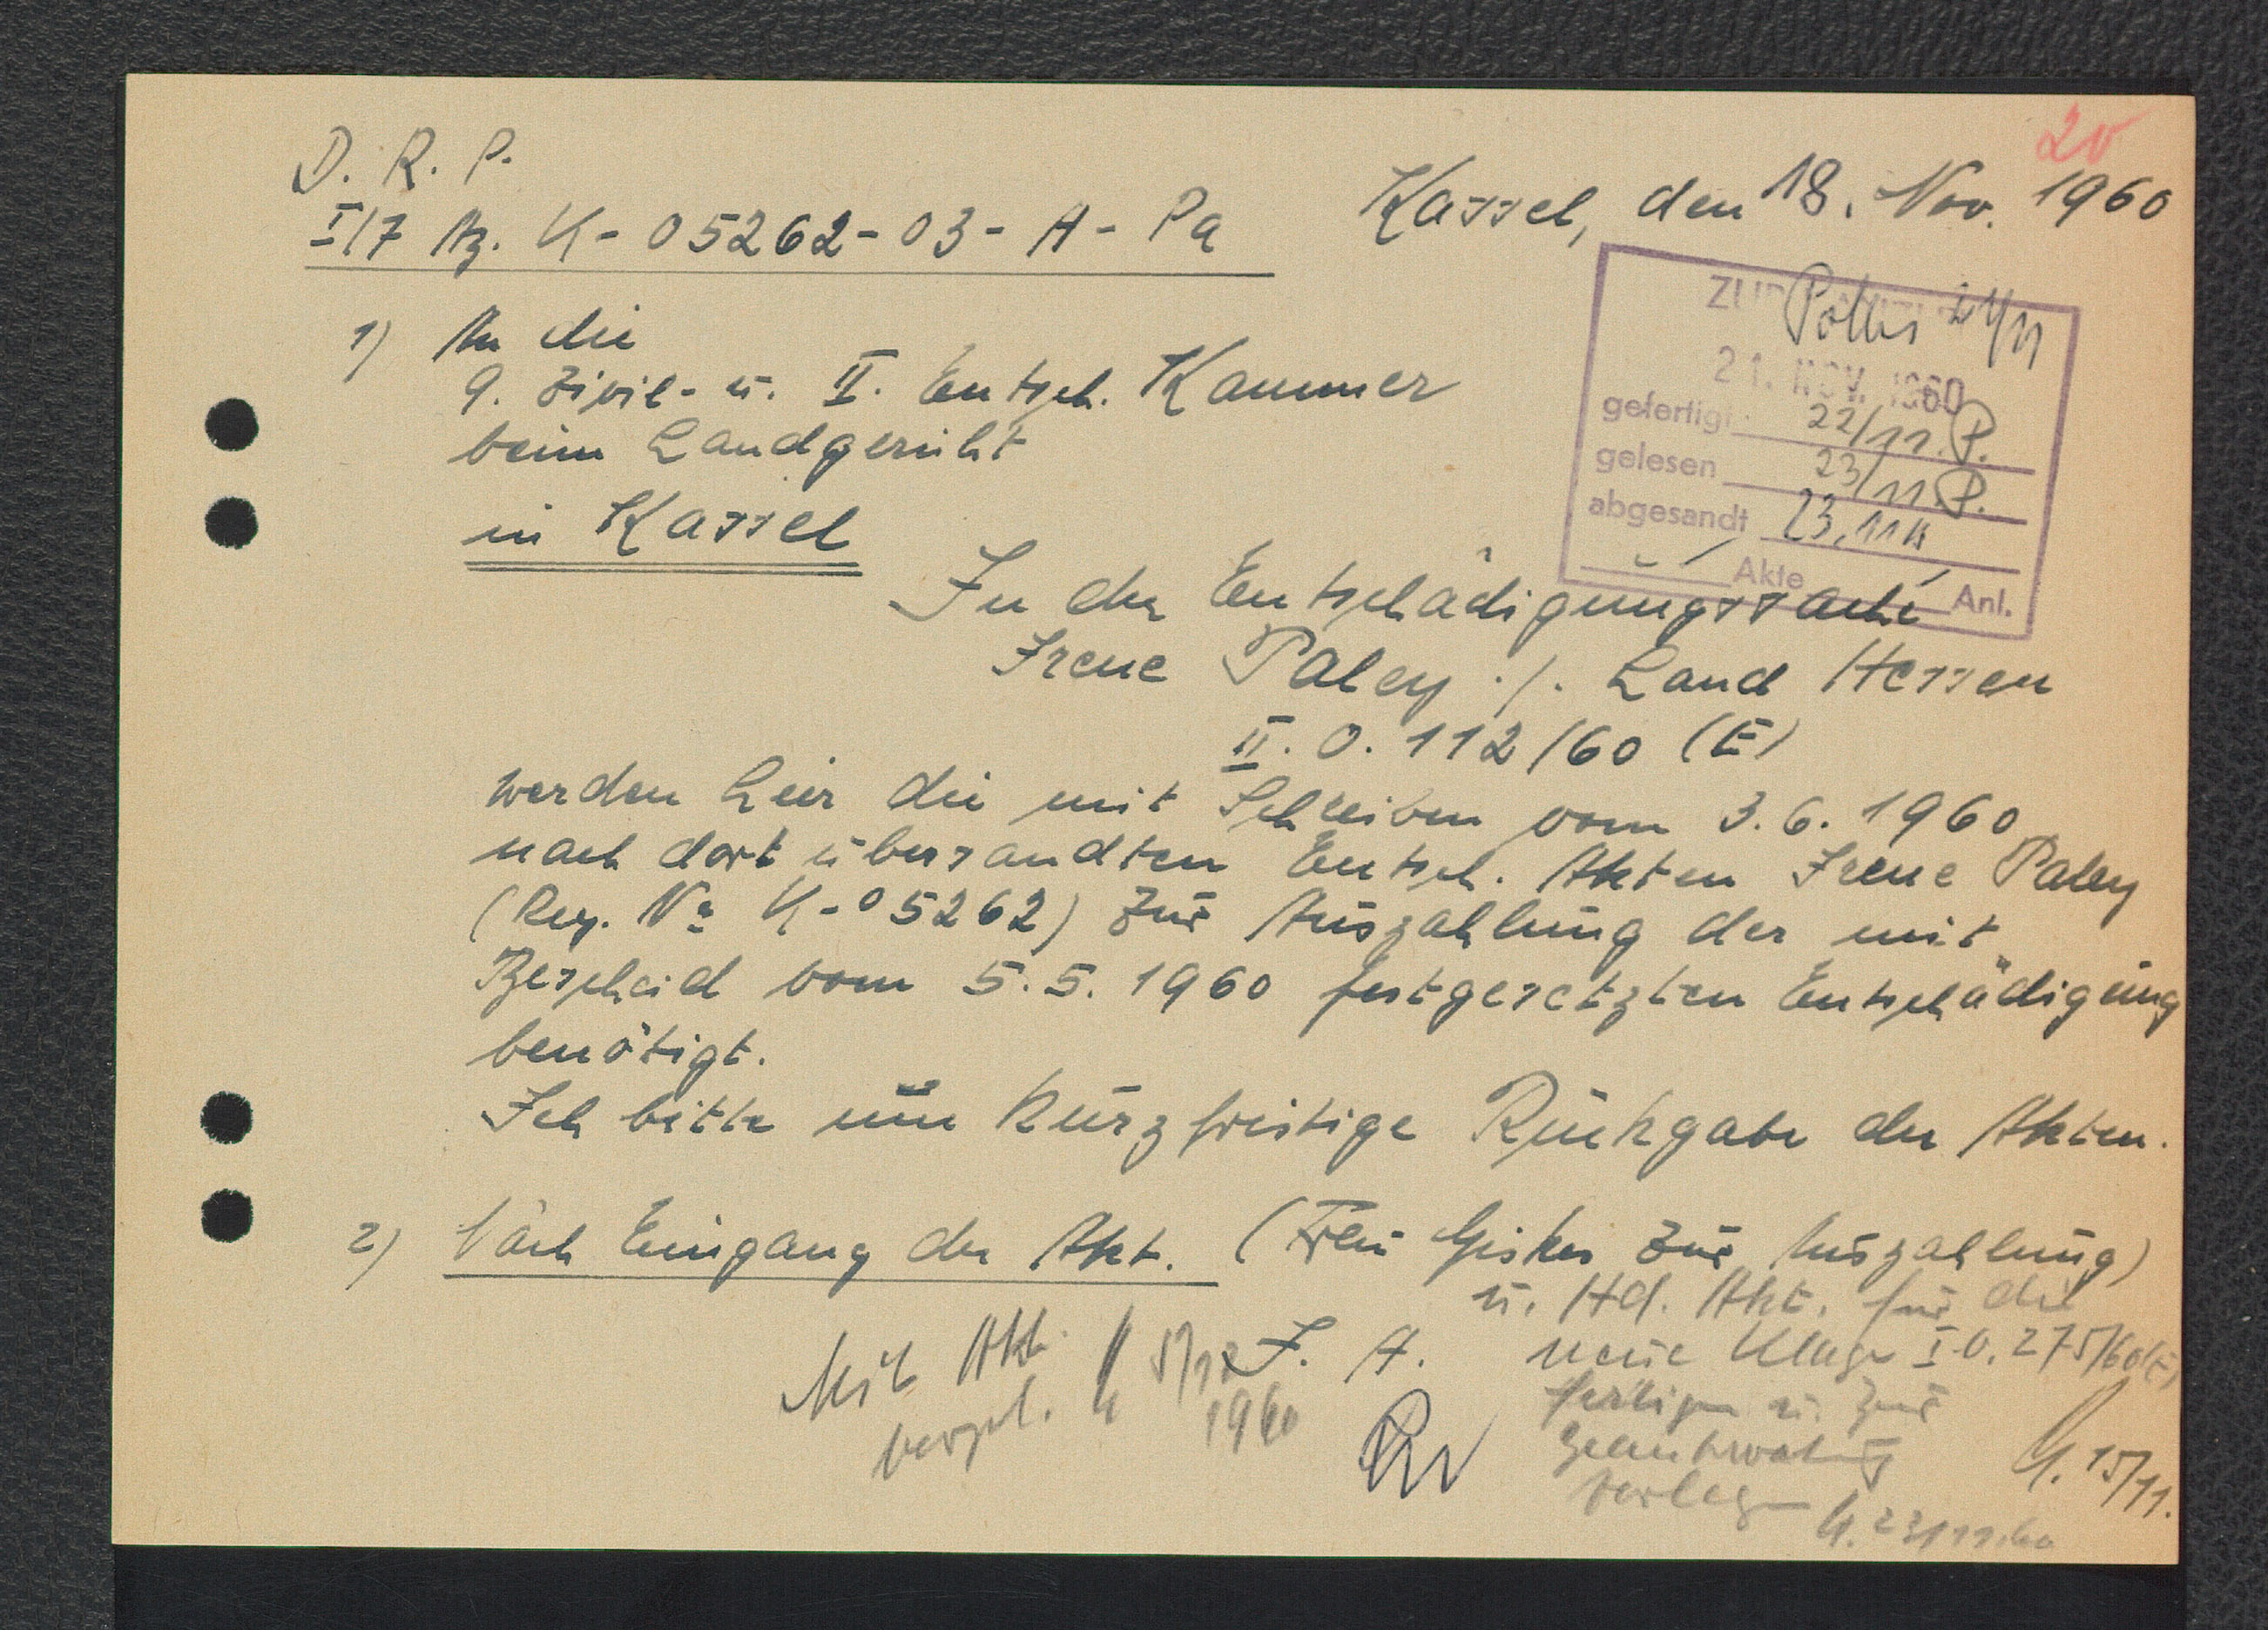 20
D. R. P.
I/7 Az. K - 05262 - 03 - A - Pa
Kassel, den 18. Nov. 1960
21/11
21. NOV. 1960
gefertigt 22/11. P.
gelesen 23/11. P.
abgesandt 23.11.
Akte Anl.
1) An die
9. Zivil- u. II. Entsch. Kammer
beim Landgericht
in Kassel
In der Entschädigungssache
Irene Paley ./. Land Hessen
II. O. 112/60 (E)
werden hier die mit Schreiben vom 3.6.1960
nach dort übersandten Entsch. Akten Irene Paley
(Reg. No K-05262) zur Auszahlung der mit
Bescheid vom 5.5.1960 festgesetzten Entschädigung
benötigt.
Ich bitte um kurzfristige Rückgabe der Akten.
2) Nach Eingang der Akt. (Frau zur Auszahlung)
u. Hd. Akt. für die
neue Klage I.O. 275/60 (E)
fertigen u. zur
Beantwortung
vorlegen
23/11.60
15/11.
I. A.
Mit Akt.
vorgel. 5/12
1960